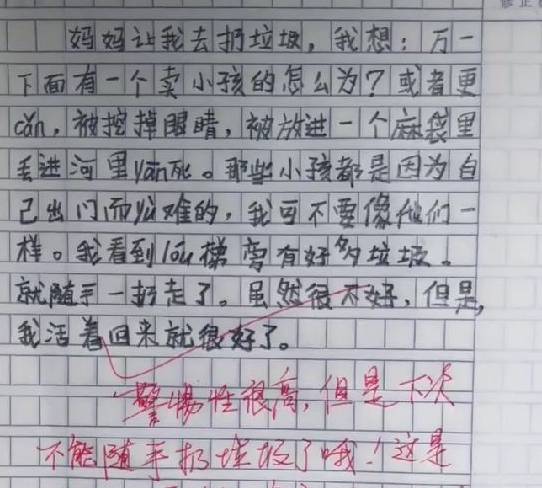 妈妈让我去扔垃圾，我想：万一
下面有一个卖小孩的怎么为？或者更
cǎn，被挖掉眼睛，被放进一个麻袋里
丢进河里yān死。那些小孩都是因为自
己出门而yù难的，我可不要像他们一
样。我看到lóu梯旁有好多垃圾。
就随手一扔走了。虽然很不好，但是，
我活着回来就很好了。
警惕性很高，但是下次
不能随手扔垃圾了哦！这是